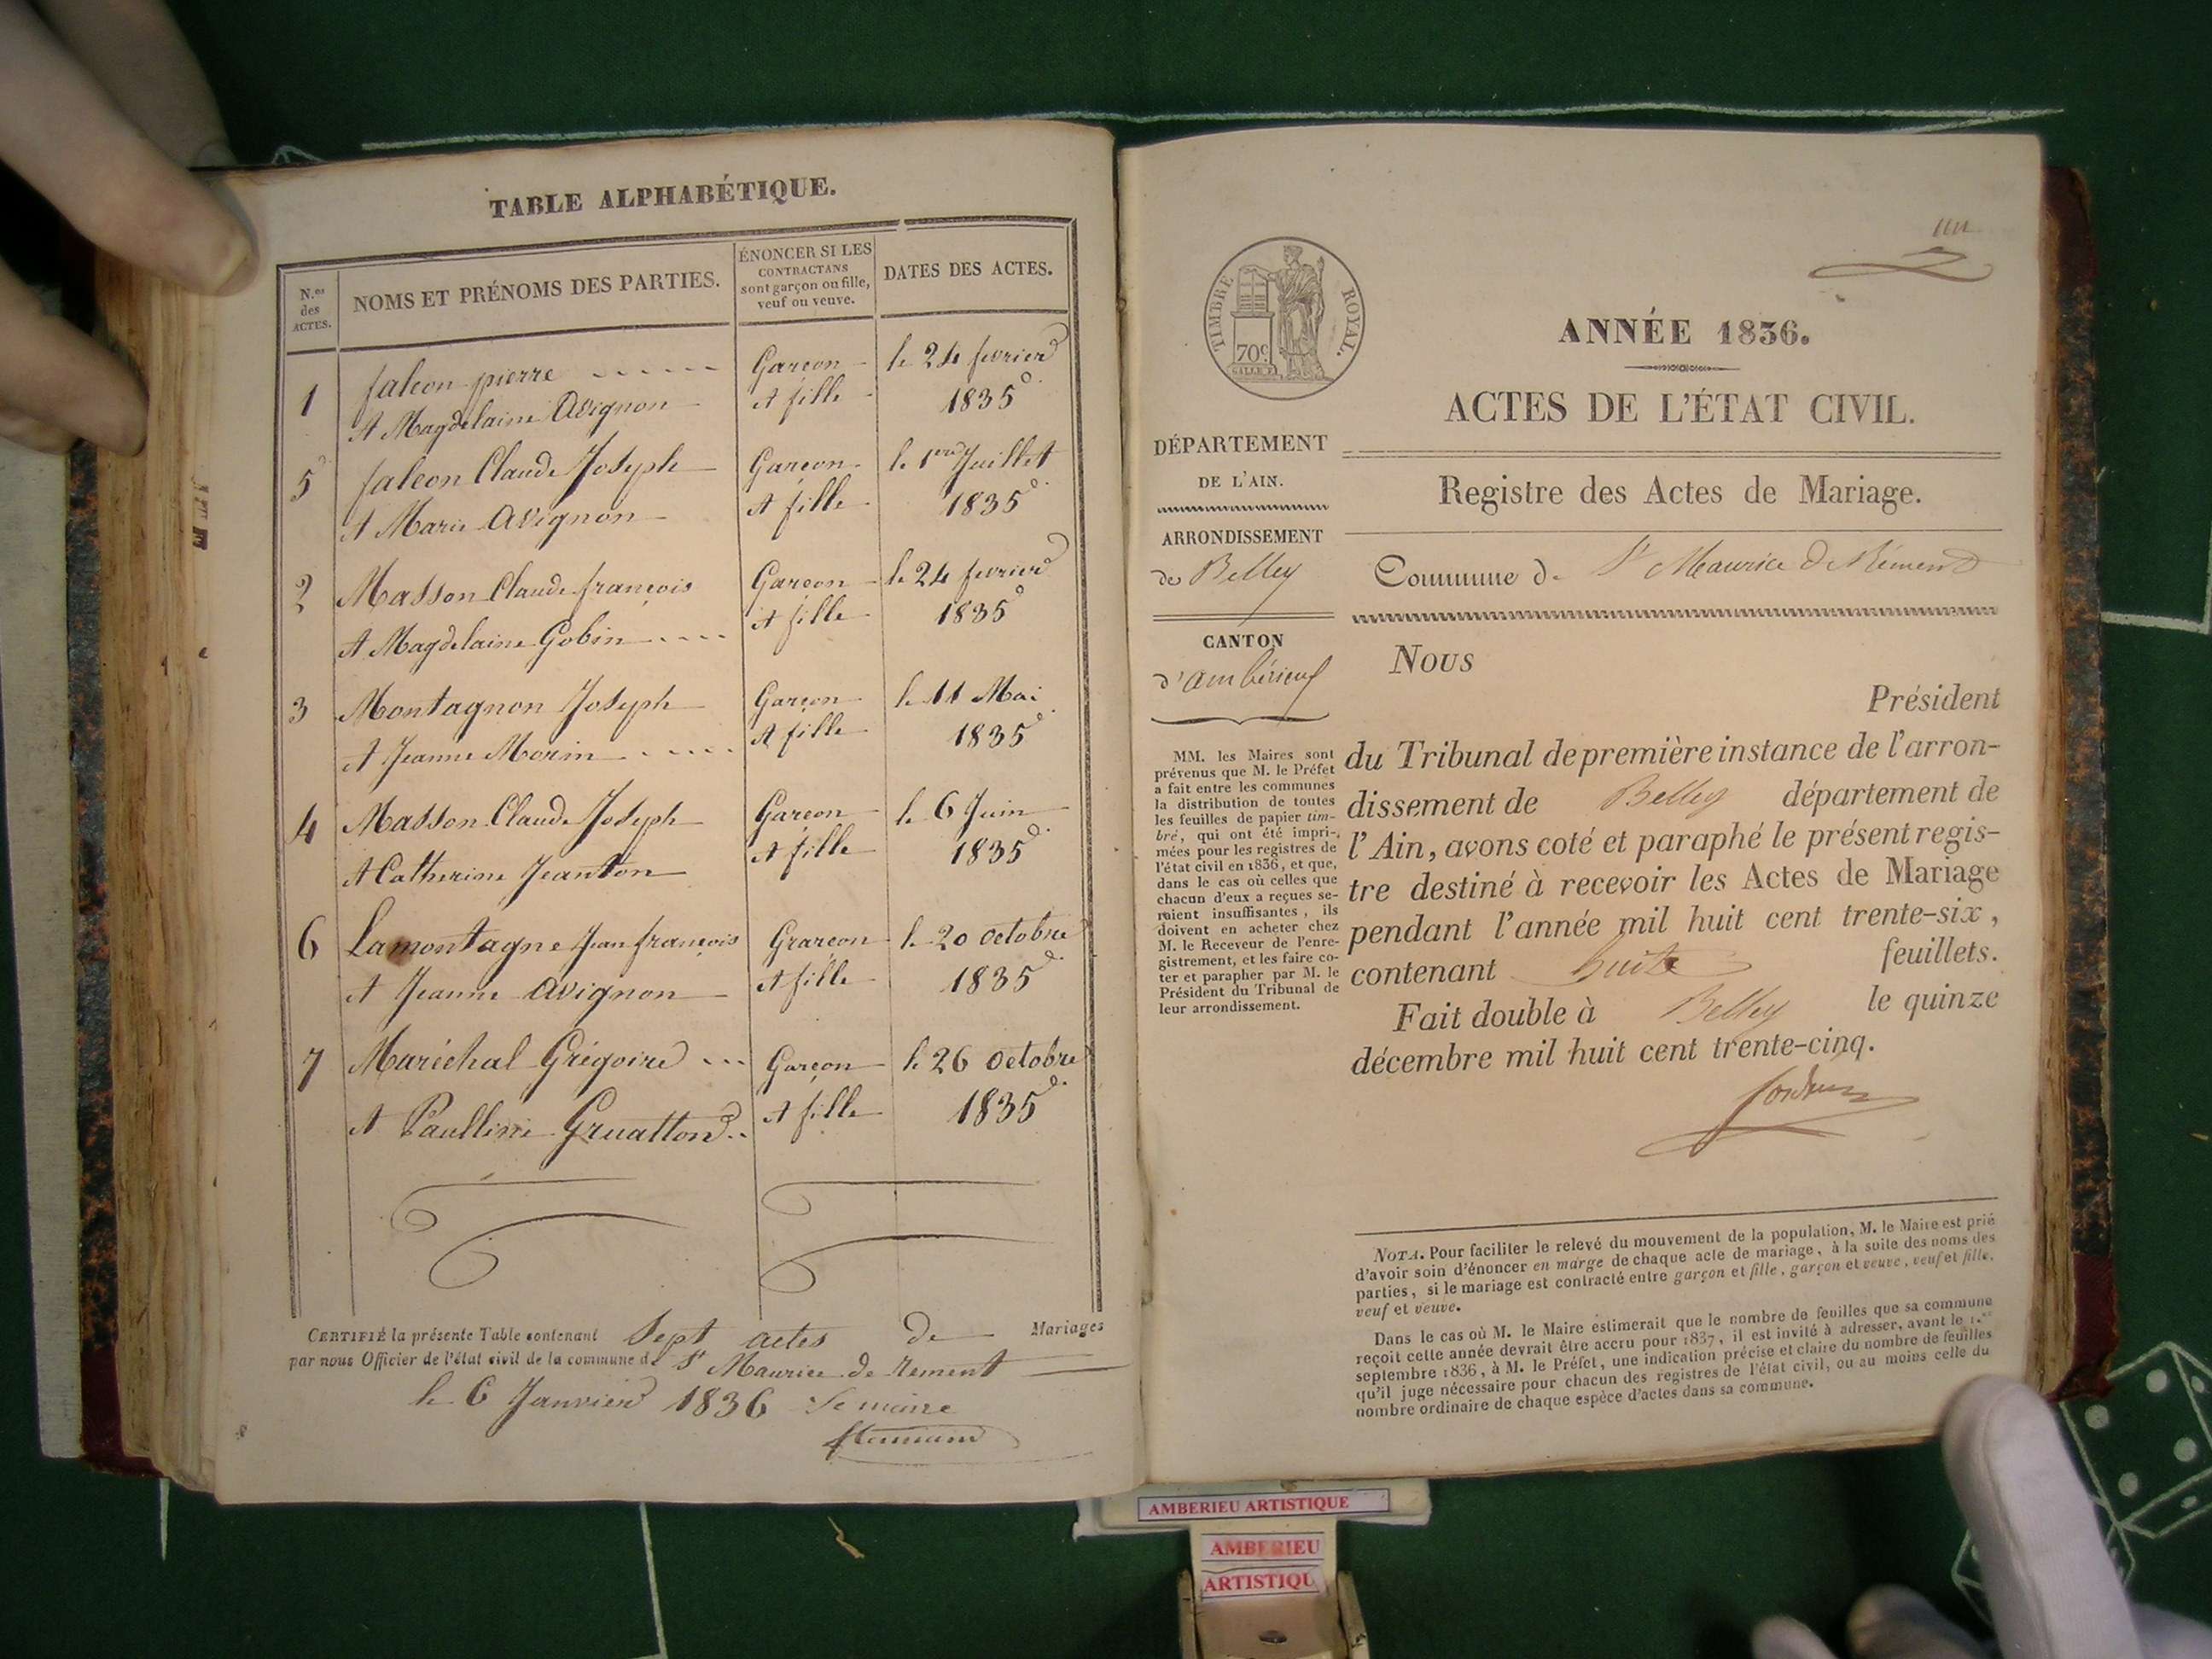 TABLE ALPHABÉTIQUE.
N.os des ACTES.
NOMS ET PRÉNOMS DES PARTIES.
ÉNONCER SI LES
CONTRACTANS
sont garçon ou fille,
veuf ou veuve.
DATES DES ACTES.
1 falcon pierre Garcon le 24 fevrier
et Magdelaine Avignon et fille 1835
5 falcon Claude Joseph Garcon le 1er Juillet
et Marie Avignon et fille 1835
2 Masson Claude françois Garcon le 24 fevrier
et Magdelaine Gobin et fille 1835
3 Montagnon Joseph Garçon le 11 Mai
et Jeanne Morin et fille 1835
4 Masson Claude Joseph Garçon le 6 Juin
et Catherine Jeanton et fille 1835
6 Lamontagne Jean françois Grarçon le 20 octobre
et Jeanne Avignon et fille 1835
7 Maréchal Grégoire Garçon le 26 octobre
et Paulline Gruatton et fille 1835
CERTIFIÉ la présente Table contenant Sept actes de Mariages
par nous Officier de l'état civil de la commune de St Maurice de Rement
le 6 Janvier 1836 Le maire
un
TIMBRE ROYAL.
70c
ANNÉE 1836.
ACTES DE L'ÉTAT CIVIL.
DÉPARTEMENT
DE L'AIN.
Registre des Actes de Mariage.
ARRONDISSEMENT
de Belley
Commune de St Maurice de Rémens
CANTON
d'ambérieuf
Nous
Président
du Tribunal de première instance de l'arron-
dissement de Belley département de
l'Ain, avons coté et paraphé le présent regis-
tre destiné à recevoir les Actes de Mariage
pendant l'année mil huit cent trente-six,
contenant huit feuillets.
Fait double à Belley le quinze
décembre mil huit cent trente-cinq.
MM. les Maires sont
prévenus que M. le Préfet
a fait entre les communes
la distribution de toutes
les feuilles de papier tim-
bré, qui ont été impri-
mées pour les registres de
l'état civil en 1836, et que,
dans le cas où celles que
chacun d'eux a reçues se-
roient insuffisantes, ils
doivent en acheter chez
M. le Receveur de l'enre-
gistrement, et les faire co-
ter et parapher par M. le
Président du Tribunal de
leur arrondissement.
NOTA. Pour faciliter le relevé du mouvement de la population, M. le Maire est prié
d'avoir soin d'énoncer en marge de chaque acte de mariage, à la suite des noms des
parties, si le mariage est contracté entre garçon et fille, garçon et veuve, veuf et fille,
veuf et veuve.
Dans le cas où M. le Maire estimerait que le nombre de feuilles que sa commune
reçoit cette année devrait être accru pour 1837, il est invité à adresser, avant le 1.er
septembre 1836, à M. le Préfet, une indication précise et claire du nombre de feuilles
qu'il juge nécessaire pour chacun des registres de l'état civil, ou au moins celle du
nombre ordinaire de chaque espèce d'actes dans sa commune.
AMBERIEU ARTISTIQUE
AMBERIEU
ARTISTIQU